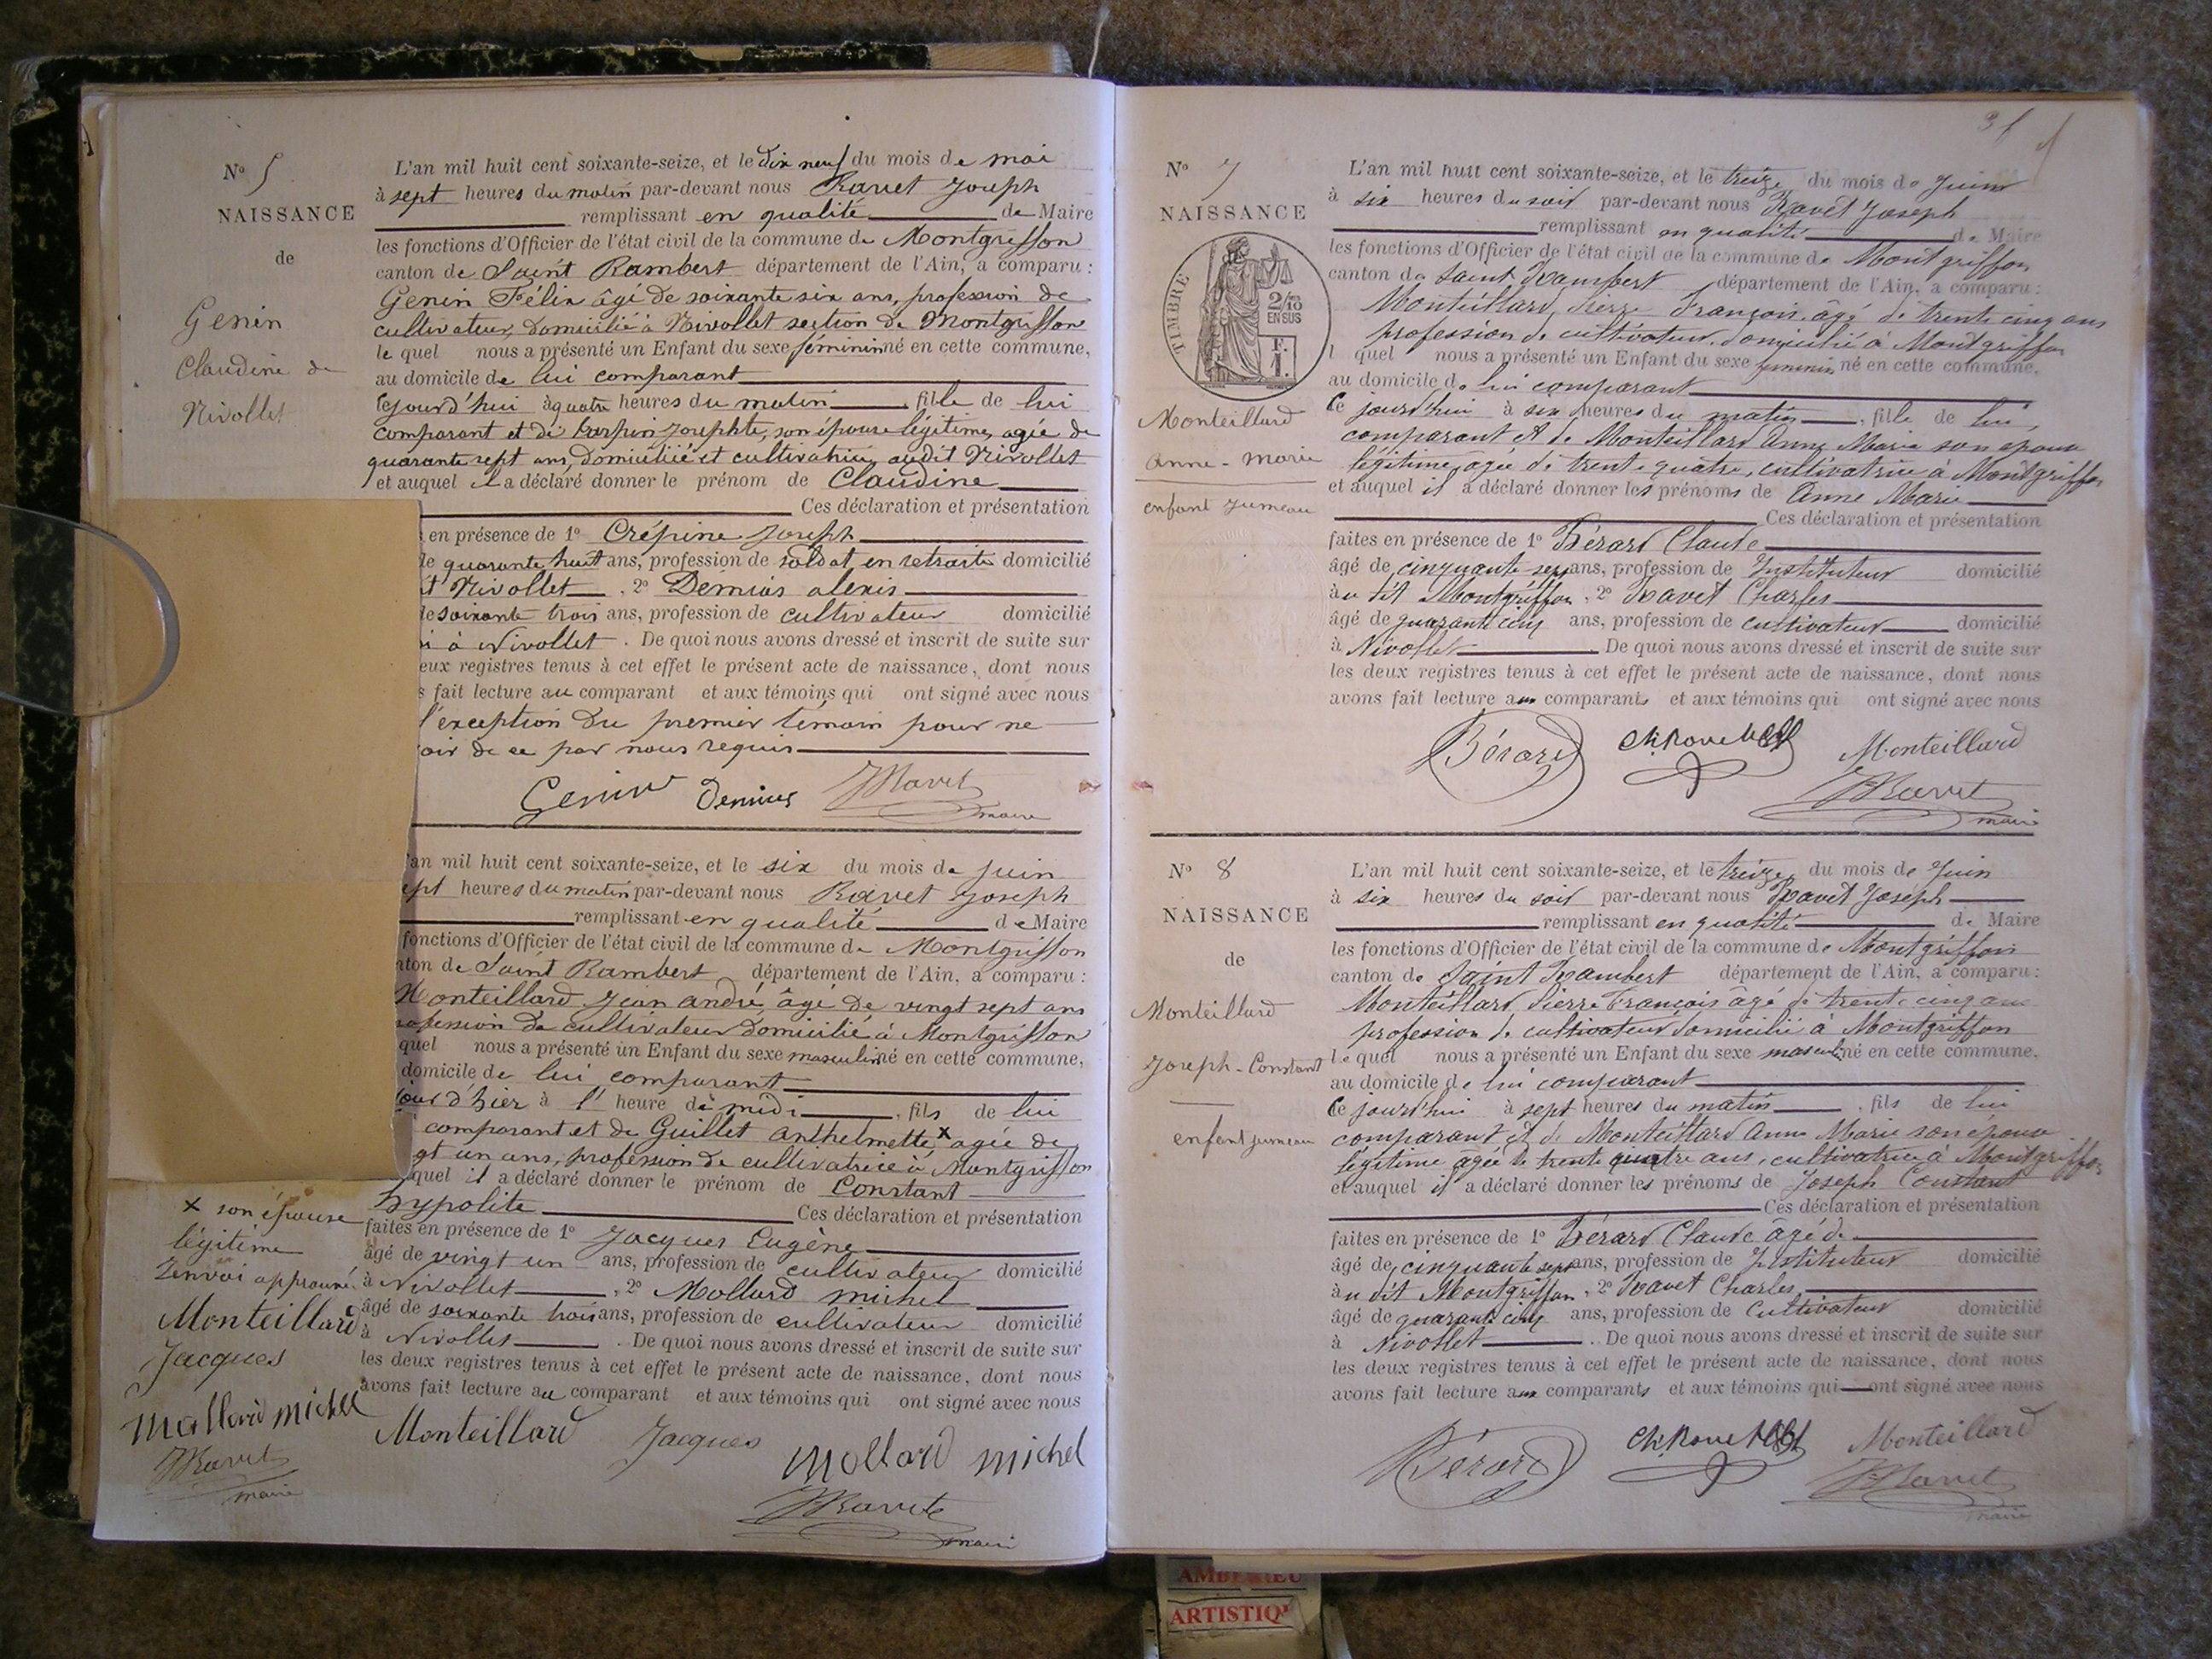 Nº 5
NAISSANCE
de
Genin
Claudine de
Nivollet
L'an mil huit cent soixante-seize, et le dix neuf du mois de mai
à sept heures du matin par-devant nous Ravet Joseph
remplissant en qualité de Maire
les fonctions d'Officier de l'état civil de la commune de Montgriffon
canton de Saint Rambert département de l'Ain, a comparu :
Genin Félix âgé de soixante six ans, profession de
cultivateur, domicilié à Nivollet section de Montgriffon
le quel nous a présenté un Enfant du sexe féminin né en cette commune,
au domicile de lui comparant
cejourd'hui à quatre heures du matin , fille de lui
comparant et de Josephte, son épouse légitime, agée de
quarante sept ans, domiciliée et cultivatrice audit Nivollet
et auquel il a déclaré donner le prénom de Claudine
Ces déclaration et présentation
en présence de 1º Crépine Joseph
de quarante huit ans, profession de soldat en retraite domicilié
it Nivollet , 2º Demias alexis
de soixante trois ans, profession de cultivateur domicilié
i à Nivollet . De quoi nous avons dressé et inscrit de suite sur
eux registres tenus à cet effet le présent acte de naissance, dont nous
s fait lecture au comparant et aux témoins qui ont signé avec nous
l'exception du premier témoin pour ne
oir de ce par nous requis
Genin Demias JRavet
maire
'an mil huit cent soixante-seize, et le six du mois de juin
ept heures du matin par-devant nous Ravet Joseph
remplissant en qualité de Maire
fonctions d'Officier de l'état civil de la commune de Montgriffon
nton de Saint Rambert département de l'Ain, a comparu :
Monteillard Jean andré âgé de vingt sept ans
rofession de cultivateur domicilié à Montgriffon
quel nous a présenté un Enfant du sexe masculin né en cette commune,
domicile de lui comparant
jour d'hier à l' heure de midi , fils de lui
comparant et de Guillet anthelmette x agée de
gt un ans, profession de cultivatrice à Montgriffon
quel il a déclaré donner le prénom de Constant
hypolite Ces déclaration et présentation
faites en présence de 1º Jacques Eugène
âgé de vingt un ans, profession de cultivateur domicilié
à Nivollet , 2º Mollard michel
âgé de soixante trois ans, profession de cultivateur domicilié
à Nivollet . De quoi nous avons dressé et inscrit de suite sur
les deux registres tenus à cet effet le présent acte de naissance, dont nous
avons fait lecture au comparant et aux témoins qui ont signé avec nous
x son épouse
légitime
Renvoi approuvé
Monteillard
Jacques
Mollard michel
JRavet
maire
Monteillard Jacques Mollard michel
JRavet
maire
31
Nº 7
NAISSANCE
TIMBRE
2/10
EN SUS
F.
1.
Monteillard
Anne - Marie
enfant jumeau
L'an mil huit cent soixante-seize, et le treize du mois de Juin
à six heures du soir par-devant nous Ravet Joseph
remplissant en qualité de Maire
les fonctions d'Officier de l'état civil de la commune de Montgriffon
canton de Saint Rambert département de l'Ain, a comparu :
Monteillard Pierre François, âgé de trente cinq ans
profession de cultivateur, domicilié à Montgriffon
l quel nous a présenté un Enfant du sexe féminin né en cette commune,
au domicile de lui comparant
Ce jourd'hui à six heures du matin , fille de lui,
comparant et de Monteillard Anne Marie son épouse
légitime, agée de trente quatre, cultivatrice à Montgriffon
et auquel il a déclaré donner les prénoms de Anne Marie
Ces déclaration et présentation
faites en présence de 1º Bérard Claude
âgé de cinquante sept ans, profession de Instituteur domicilié
au dit Montgriffon , 2º Ravet Charles
âgé de quarante cinq ans, profession de cultivateur domicilié
à Nivollet . De quoi nous avons dressé et inscrit de suite sur
les deux registres tenus à cet effet le présent acte de naissance, dont nous
avons fait lecture aux comparants et aux témoins qui ont signé avec nous
Bérard Monteillard
JRavet
maire
Nº 8
NAISSANCE
de
Monteillard
Joseph - Constant
enfant jumeau
L'an mil huit cent soixante-seize, et le treize du mois de Juin
à six heures du soir par-devant nous Ravet Joseph
remplissant en qualité de Maire
les fonctions d'Officier de l'état civil de la commune de Montgriffon
canton de Saint Rambert département de l'Ain, a comparu :
Monteillard Pierre François âgé de trente cinq ans
profession de cultivateur domicilié à Montgriffon
le quel nous a présenté un Enfant du sexe masculin né en cette commune,
au domicile de lui comparant
Ce jourd'hui à sept heures du matin , fils de lui
comparant et de Monteillard Anne Marie son épouse
légitime agée de trente quatre ans, cultivatrice à Montgriffon
et auquel il a déclaré donner les prénoms de Joseph Constant
Ces déclaration et présentation
faites en présence de 1º Bérard Claude âgé de
âgé de cinquante sept ans, profession de Instituteur domicilié
au dit Montgriffon , 2º Ravet Charles
âgé de quarante cinq ans, profession de Cultivateur domicilié
à Nivollet . De quoi nous avons dressé et inscrit de suite sur
les deux registres tenus à cet effet le présent acte de naissance, dont nous
avons fait lecture aux comparants et aux témoins qui ont signé avec nous
Bérard Monteillard
JRavet
maire
ARTISTIQ